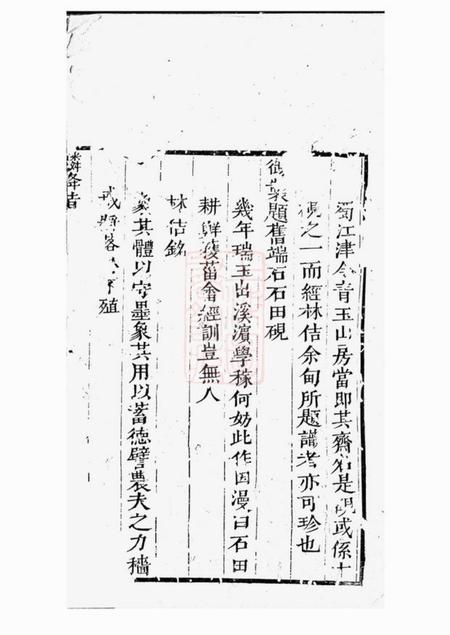 蜀江津令青玉山房當即其齋名是硯或係十
硯之一而經林佶余甸所題識者亦可珍也
御製題舊端石石田硯
幾年瑞玉出溪濱學稼何妨此作因漫曰石田
耕鮮穫菑畬經訓豈無人
林佶銘
象其體以守墨象其用以蓄德譬農夫之力穡
戒
殖